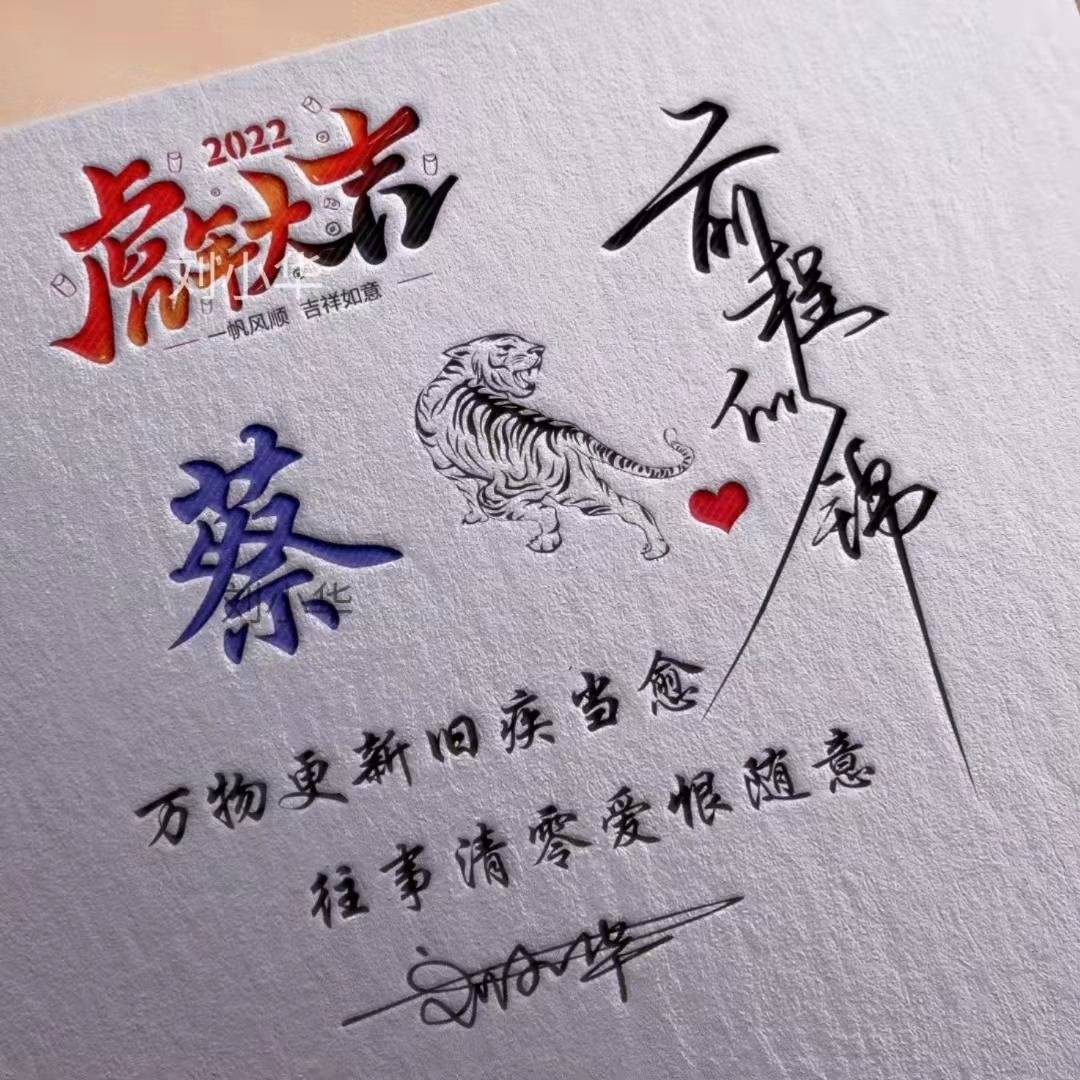 2022
虎年大吉
刘小华
一帆风顺 吉祥如意
前程似锦
蔡
刘小华
万物更新旧疾当愈
往事清零爱恨随意
刘小华